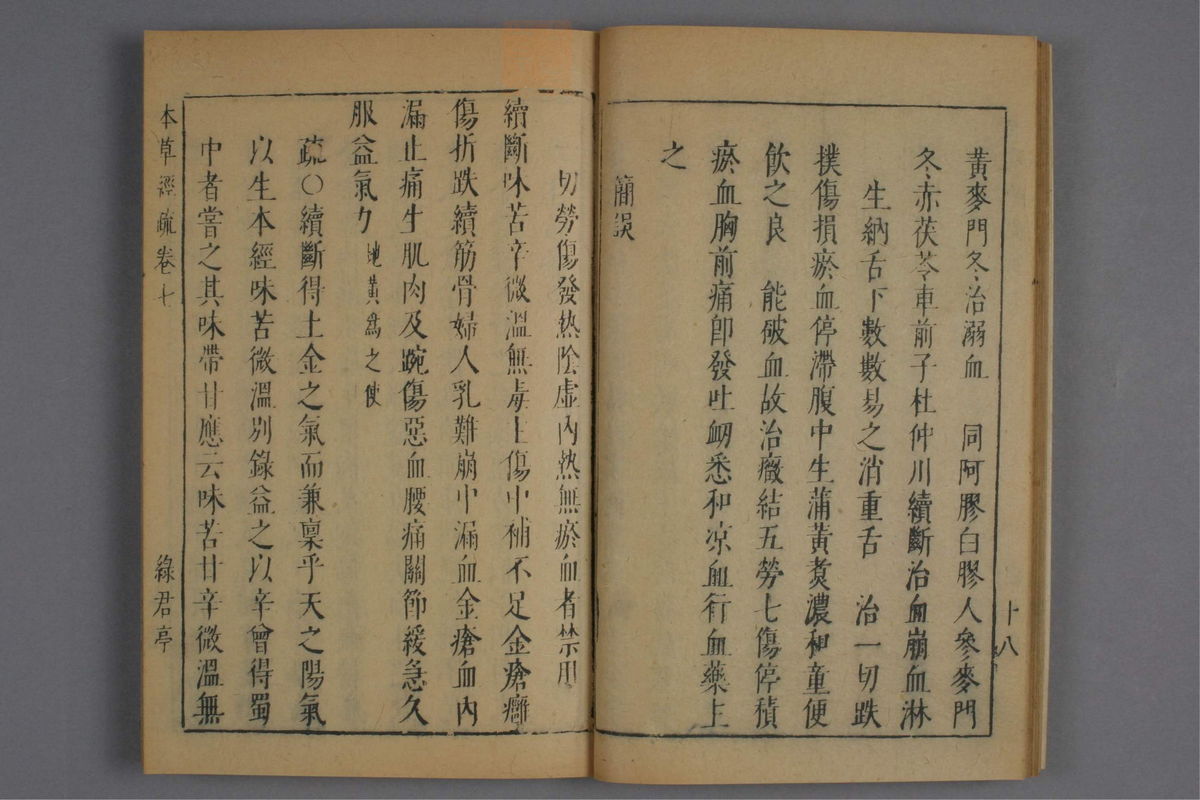 黃麥門冬治溺血　同阿膠白膠人參麥門
冬赤茯苓車前子杜仲川續斷治血崩血淋
生納舌下數數易之消重舌　治一切跌
撲傷損瘀血停滯腹中生蒲黃煑濃和童便
飮之良　能破血故治癥結五勞七傷停積
瘀血胸前痛卽發吐衂悉和凉血行血藥上
之
簡誤
十八
切勞傷發熱陰虛內熱無瘀血者禁用
續斷味苦辛微溫無毒主傷中補不足金瘡癰
傷折跌續筋骨婦人乳難崩中漏血金瘡血內
漏止痛生肌肉及踠傷惡血腰痛關節緩急久
服益氣力　地黃爲之使
疏○續斷得土金之氣而兼稟乎天之陽氣
以生本經味苦微溫別錄益之以辛曾得蜀
中者嘗之其味帶甘應云味苦甘辛微溫無
本草經疏卷七
綠君亭